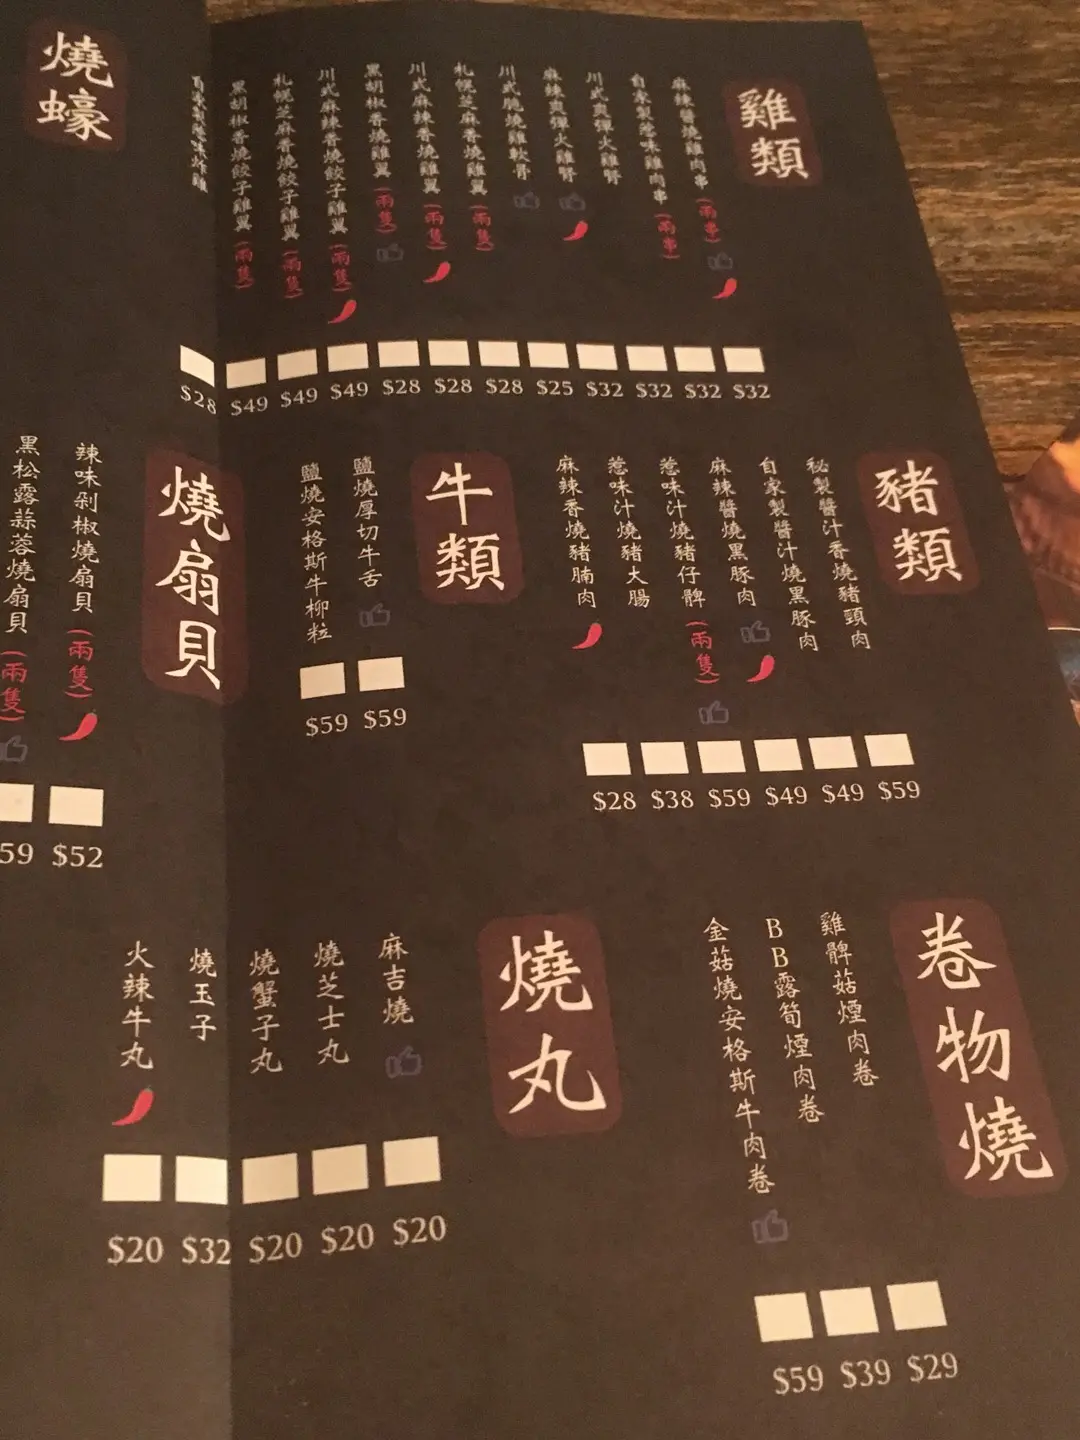 雞類
麻辣醬燒雞肉串(兩串)
自家製惹味雞肉串(兩串)
川式爽彈火雞腎
麻辣爽彈火雞腎
川式脆燒雞軟骨
札幌芝麻香燒雞翼(兩隻)
川式麻辣香燒雞翼(兩隻)
黑胡椒香燒雞翼(兩隻)
川式麻辣香燒餃子雞翼(兩隻)
札幌芝麻香燒餃子雞翼(兩隻)
黑胡椒香燒餃子雞翼(兩隻)
$28 $49 $49 $49 $28 $28 $28 $25 $32 $32 $32 $32
燒蠔
豬類
秘製醬汁香燒豬頸肉
自家製醬汁燒黑豚肉
麻辣醬燒黑豚肉
惹味汁燒豬仔髀(兩隻)
惹味汁燒豬大腸
麻辣香燒豬腩肉
$28 $38 $59 $49 $49 $59
牛類
鹽燒厚切牛舌
鹽燒安格斯牛柳粒
$59 $59
燒扇貝
辣味剁椒燒扇貝(兩隻)
黑松露蒜蓉燒扇貝(兩隻)
59 $52
卷物燒
雞髀菇煙肉卷
BB露筍煙肉卷
金菇燒安格斯牛肉卷
$59 $39 $29
燒丸
麻吉燒
燒芝士丸
燒蟹子丸
燒玉子
火辣牛丸
$20 $32 $20 $20 $20